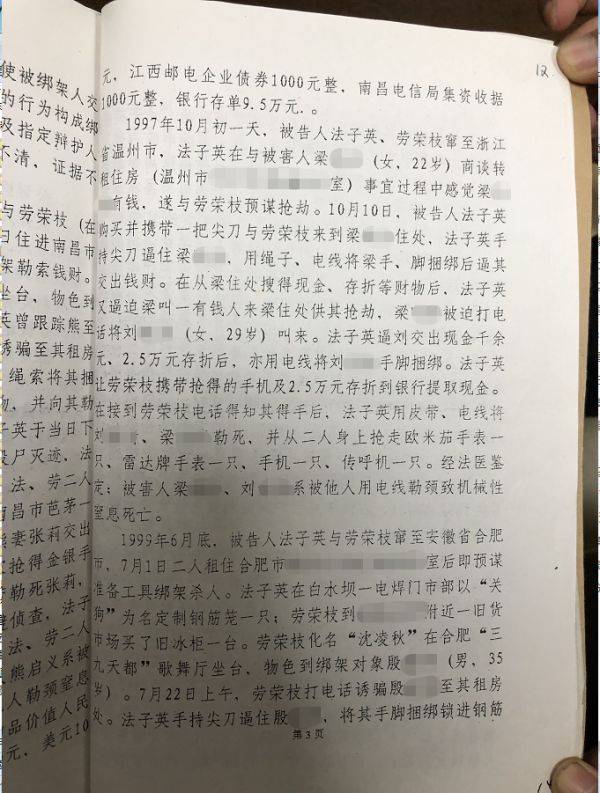 使被绑架人交
的行为构成绑
及指定辩护人
不清，证据不
与劳荣枝（在
日住进南昌市
架勒索钱财。
坐台，物色到
英曾跟踪熊至
诱骗至其租房
绳索将其捆
物，并向其勒
子英于当日下
尸灭迹，法
法、劳二人
南昌市芭茅一
妻张莉交出
抢得金银手
勒死张莉，
侦查，法子
法、劳二人
熊启义系被
人勒颈窒息
品价值人民
元、美元10
12
元，江西邮电企业债券1000元整，南昌电信局集资收据
1000元整，银行存单9.5万元.。
1997年10月初一天，被告人法子英、劳荣枝窜至浙江
省温州市，法子英在与被害人梁（女，22岁）商谈转
租住房（温州市室）事宜过程中感觉梁
有钱，遂与劳荣枝预谋抢劫。10月10日，被告人法子英
购买并携带一把尖刀与劳荣枝来到梁住处，法子英手
持尖刀逼住梁，用绳子、电线将梁手、脚捆绑后逼其
交出钱财。在从梁住处搜得现金、存折等财物后，法子英
又逼迫梁叫一有钱人来梁住处供其抢劫，梁被迫打电
话将刘（女，29岁）叫来。法子英逼刘交出现金千余
元、2.5万元存折后，亦用电线将刘手脚捆绑。法子英
让劳荣枝携带抢得的手机及2.5万元存折到银行提取现金。
在接到劳荣枝电话得知其得手后，法子英用皮带、电线将
刘、梁勒死，并从二人身上抢走欧米茄手表一
只、雷达牌手表一只、手机一只、传呼机一只。经法医鉴
定：被害人梁、刘系被他人用电线勒颈致机械性
窒息死亡。
1999年6月底，被告人法子英与劳荣枝窜至安徽省合肥
市，7月1日二人租住合肥市室后即预谋
准备工具绑架杀人。法子英在白水坝一电焊门市部以“关
狗”为名定制钢筋笼一只；劳荣枝到附近一旧货
市场买了旧冰柜一台。劳荣枝化名“沈凌秋”在合肥“三
九天都”歌舞厅坐台，物色到绑架对象殷（男，35
岁）。7月22日上午，劳荣枝打电话诱骗殷至其租房
处。法子英手持尖刀逼住殷，将其手脚捆绑锁进钢筋
第3页